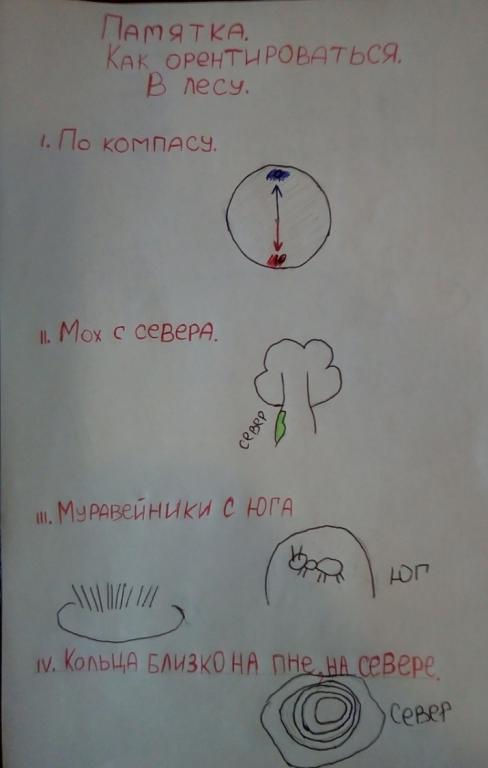 Памятка.
Как орентироваться.
В лесу.
I. По компасу.
II. Мох с севера.
север
III. Муравейники с юга
юг
IV. Кольца близко на пне, на севере.
север